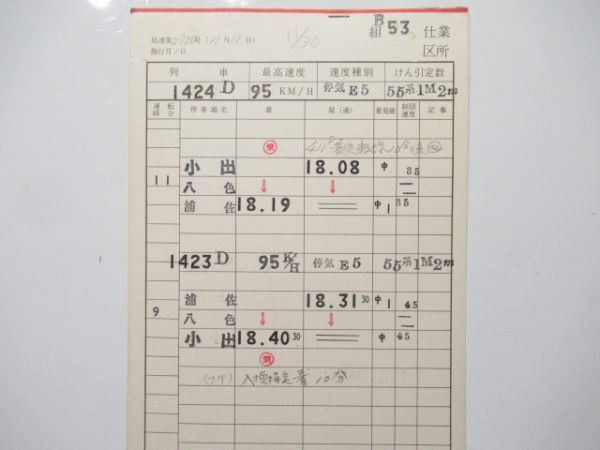 B
組 53 仕業
区所
11/30
列車 最高速度 速度種別 けん引定数
1424D 95 KM/H 停気E5 55系1M2m
運転時分 停車場名 着 発(通) 着発線 制限速度 記事
乗
小出 18.08 中 35
11 八色 ↓ ↓ 二
浦佐 18.19 == 中1 35
1423D 95 K/H 停気E5 55系1M2m
浦佐 18.31 30 中1 45
9 八色 ↓ ↓ 二
小出 18.40 30 == 中 45
入換指定着10分